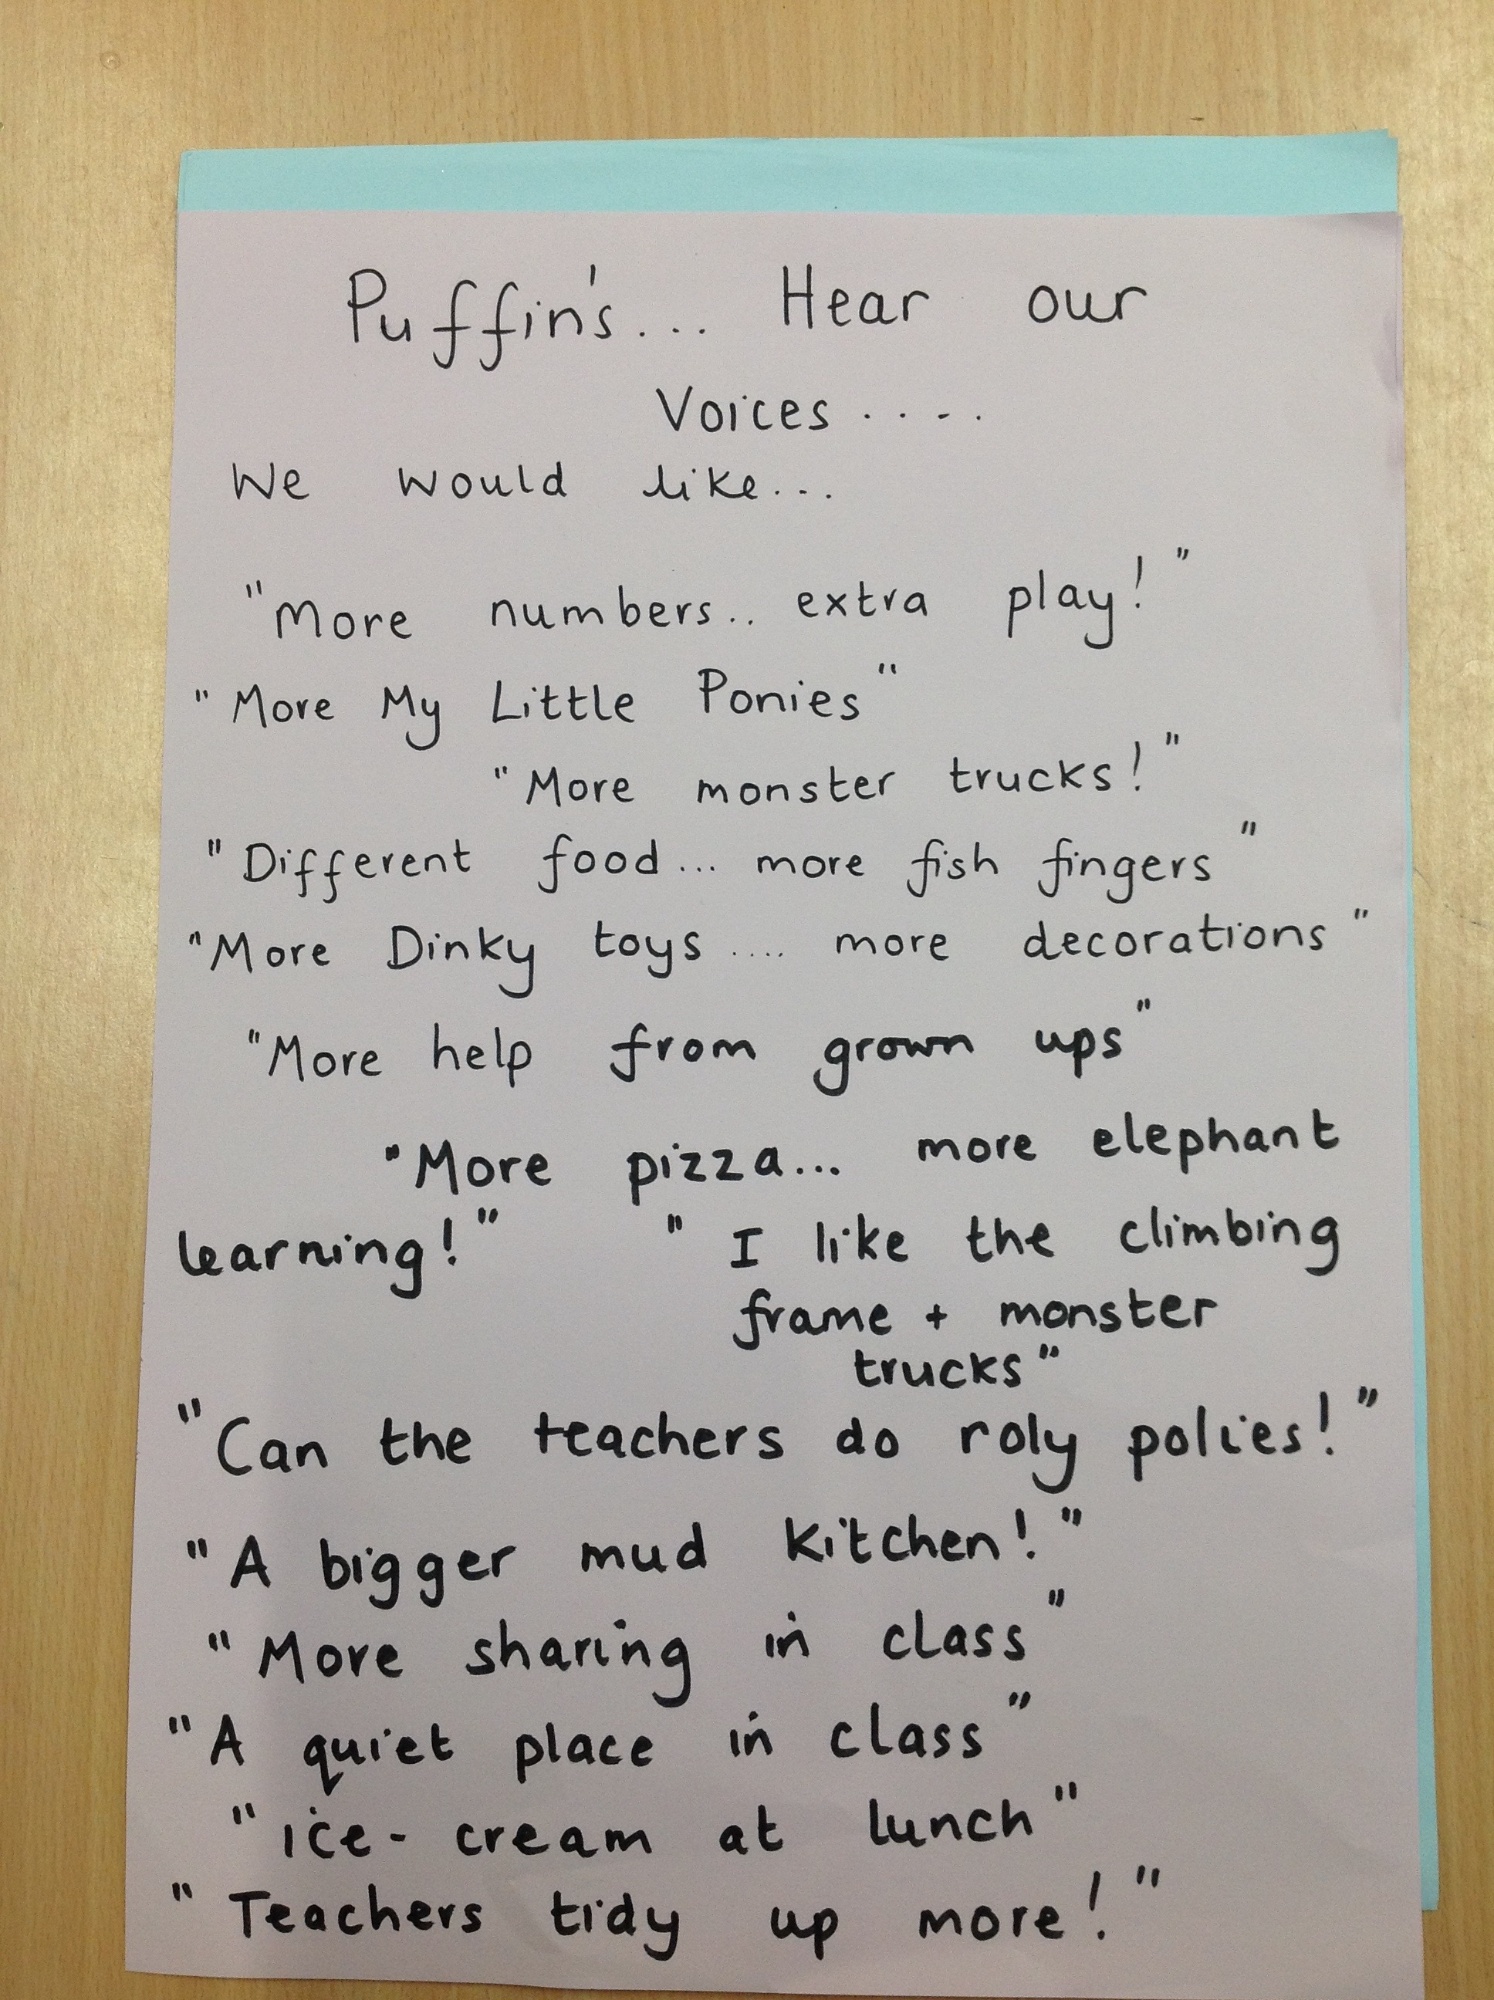 Puffin's... Hear our
Voices ....
We would like...
"More numbers.. extra play!"
"More My Little Ponies"
"More monster trucks!"
"Different food... more fish fingers"
"More Dinky toys .... more decorations"
"More help from grown ups"
"More pizza... more elephant
learning!" "I like the climbing
frame + monster
trucks"
"Can the teachers do roly polies!"
"A bigger mud kitchen!"
"More sharing in class"
"A quiet place in class"
"ice-cream at lunch"
"Teachers tidy up more!"